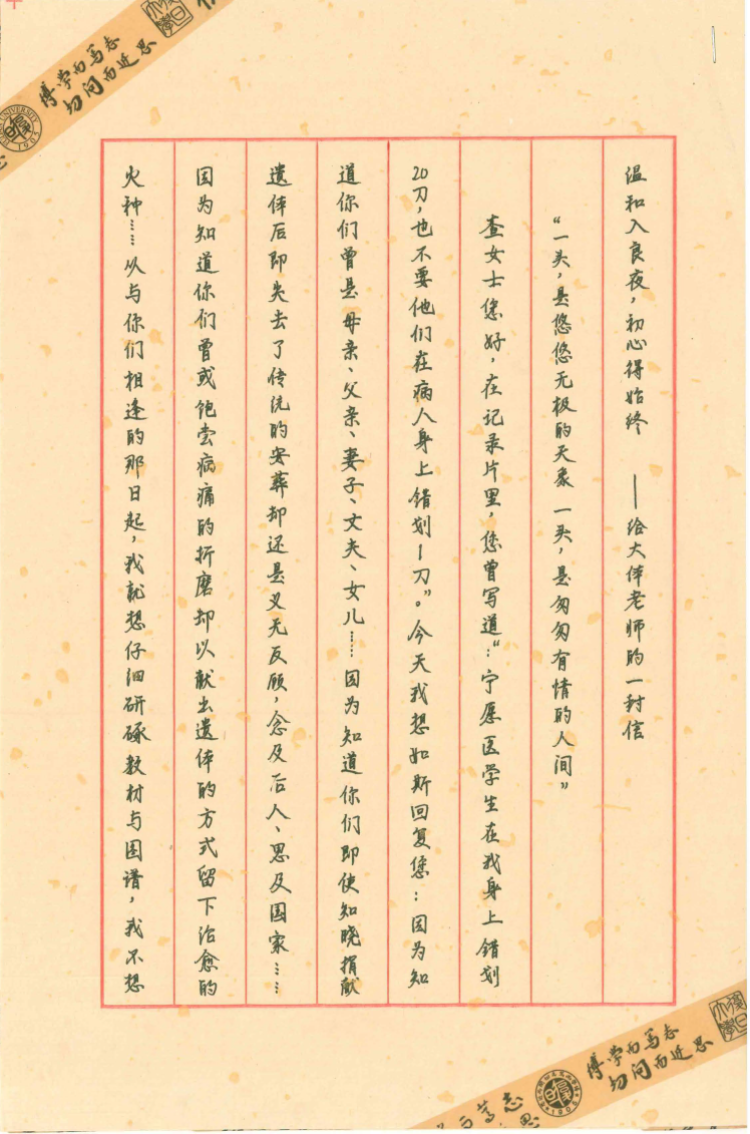 温和入良夜，初心得始终 ——给大体老师的一封信
“一头，是悠悠无极的天象 一头，是匆匆有情的人间”
查女士您好，在记录片里，您曾写道：“宁愿医学生在我身上错划
20刀，也不要他们在病人身上错划一刀”。今天我想如斯回复您：因为知
道你们曾是母亲、父亲、妻子、丈夫、女儿……因为知道你们即使知晓捐献
遗体后即失去了传统的安葬却还是义无反顾，念及后人、思及国家……
因为知道你们曾或饱尝病痛的折磨却以献出遗体的方式留下治愈的
火种……从与你们相逢的那日起，我就想仔细研琢教材与图谱，我不想
博学而笃志
切问而近思
UNIVERSITY
1905
博学而笃志
切问而近思
复旦大学
1905